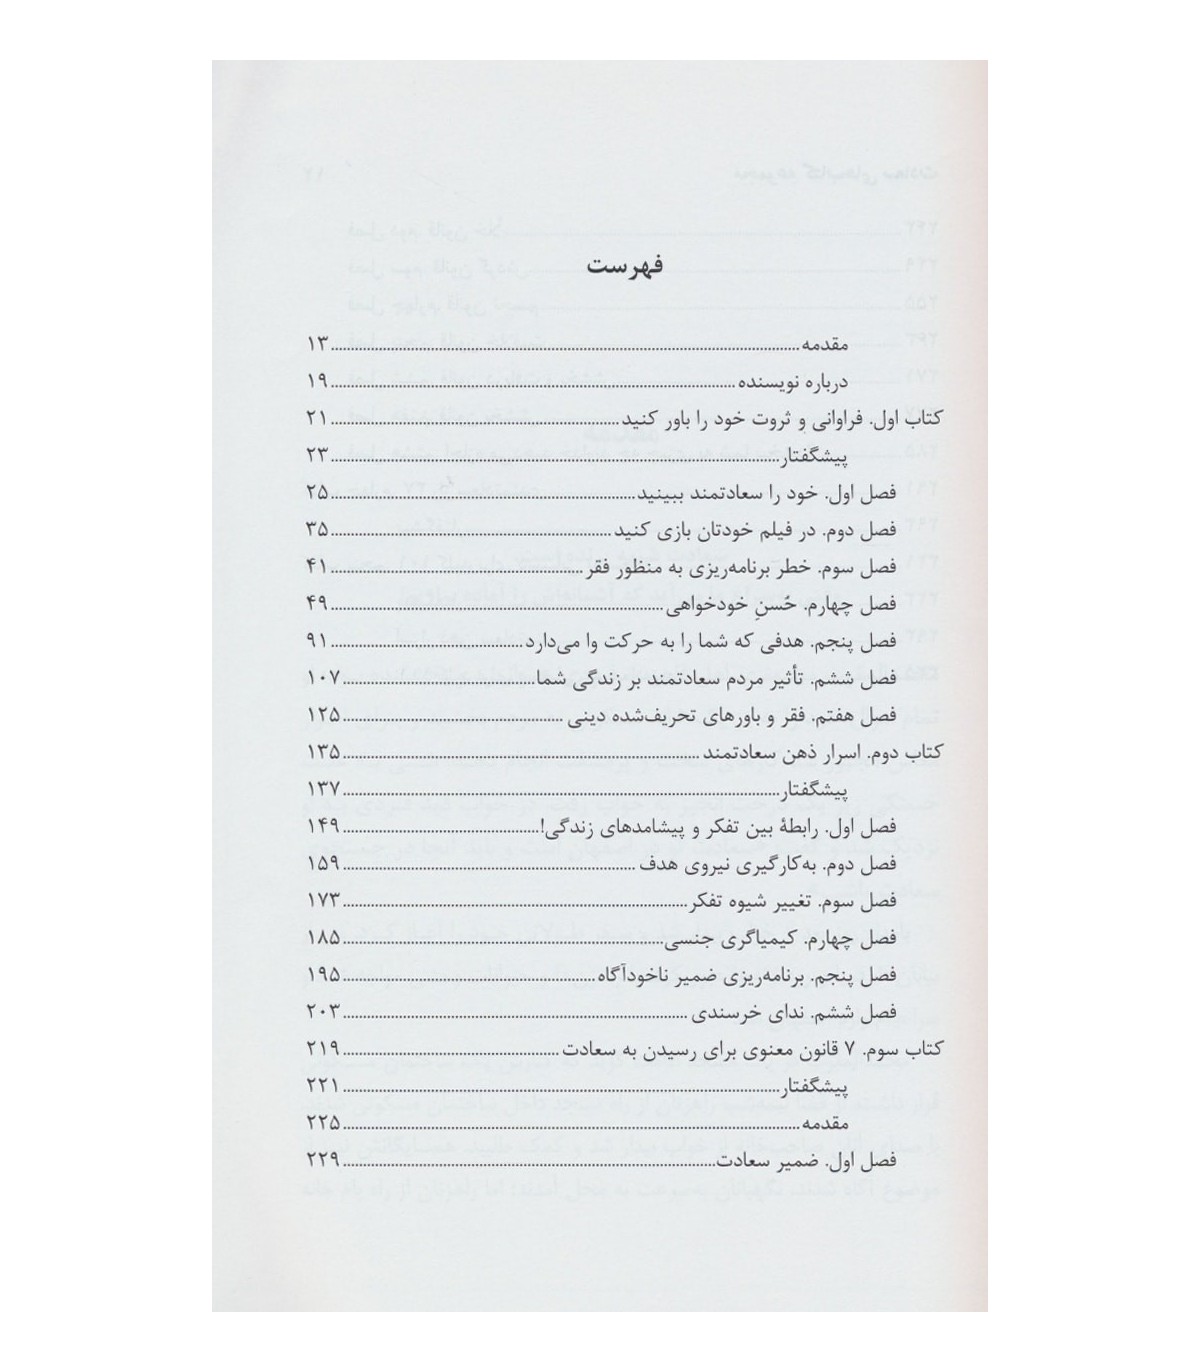 فهرست
مقدمه................۱۳
درباره نویسنده................۱۹
کتاب اول. فراوانی و ثروت خود را باور کنید................۲۱
پیشگفتار................۲۳
فصل اول. خود را سعادتمند ببینید................۲۵
فصل دوم. در فیلم خودتان بازی کنید................۳۵
فصل سوم. خطر برنامه‌ریزی به منظور فقر................۴۱
فصل چهارم. حُسنِ خودخواهی................۴۹
فصل پنجم. هدفی که شما را به حرکت وا می‌دارد................۹۱
فصل ششم. تأثیر مردم سعادتمند بر زندگی شما................۱۰۷
فصل هفتم. فقر و باورهای تحریف‌شده دینی................۱۲۵
کتاب دوم. اسرار ذهن سعادتمند................۱۳۵
پیشگفتار................۱۳۷
فصل اول. رابطهٔ بین تفکر و پیشامدهای زندگی!................۱۴۹
فصل دوم. به‌کارگیری نیروی هدف................۱۵۹
فصل سوم. تغییر شیوه تفکر................۱۷۳
فصل چهارم. کیمیاگری جنسی................۱۸۵
فصل پنجم. برنامه‌ریزی ضمیر ناخودآگاه................۱۹۵
فصل ششم. ندای خرسندی................۲۰۳
کتاب سوم. ۷ قانون معنوی برای رسیدن به سعادت................۲۱۹
پیشگفتار................۲۲۱
مقدمه................۲۲۵
فصل اول. ضمیر سعادت................۲۲۹